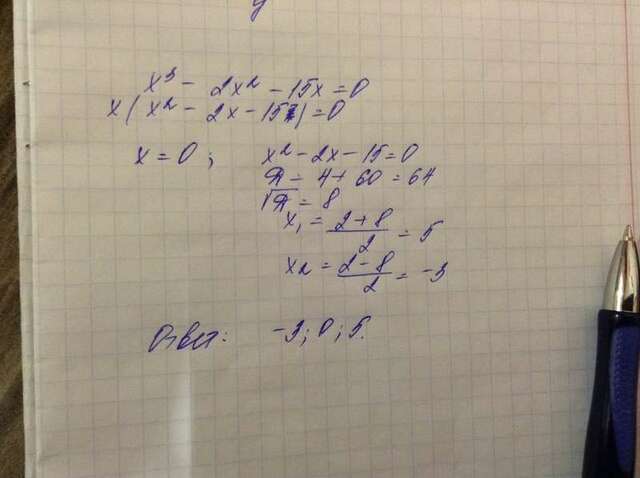 x³ - 2x² - 15x = 0
x(x² - 2x - 15) = 0
x = 0; x² - 2x - 15 = 0
D = 4 + 60 = 64
√D = 8
x₁ = (2+8)/2 = 5
x₂ = (2-8)/2 = -3
Ответ: -3; 0; 5.